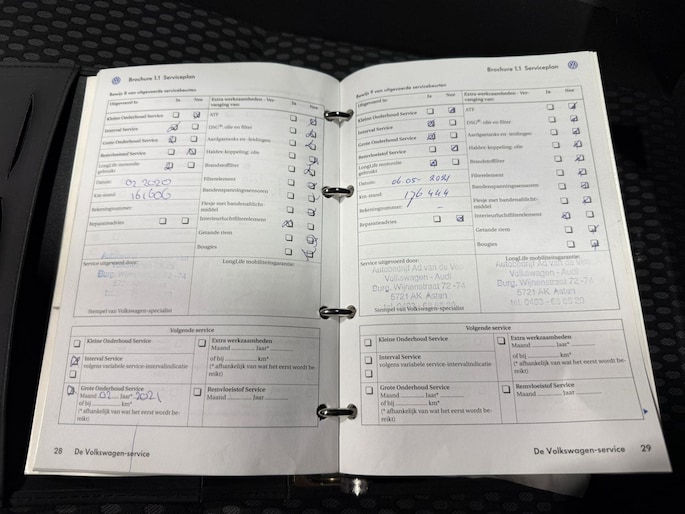 Brochure 1.1 Serviceplan
Bewijs 9 van uitgevoerde servicebeurten
Uitgevoerd te: Ja Nee
Kleine Onderhoud Service
Interval Service
Grote Onderhoud Service
Remvloeistof Service
LongLife motorolie gebruikt
Datum: 02 2020
Km-stand: 161606
Rekeningnummer:
Reparatieadvies
Extra werkzaamheden - Vervanging van: Ja Nee
ATF
DSG®: olie en filter
Aardgastanks en -leidingen
Haldex-koppeling: olie
Brandstoffilter
Filterelement
Bandenspanningssensoren
Flesje met bandenafdichtmiddel
Interieurluchtfilterelement
Getande riem
Bougies
Service uitgevoerd door:
LongLife mobiliteitsgarantie:
Stempel van Volkswagen-specialist
Volgende service
Kleine Onderhoud Service
Interval Service
volgens variabele service-intervalindicatie
Grote Onderhoud Service
Maand 02 Jaar* 2021
of bij ........ km*
(* afhankelijk van wat het eerst wordt bereikt)
Extra werkzaamheden
Maand ........ Jaar* ........
of bij ........ km*
(* afhankelijk van wat het eerst wordt bereikt)
Remvloeistof Service
Maand ........ Jaar ........
28 De Volkswagen-service
Brochure 1.1 Serviceplan
Bewijs 9 van uitgevoerde servicebeurten
Ja Nee
Kleine Onderhoud Service
Interval Service
Grote Onderhoud Service
Remvloeistof Service
LongLife motorolie gebruikt
Datum: 06-05- 2021
Km-stand: 176444
Rekeningnummer: -
Reparatieadvies
Extra werkzaamheden - Vervanging van: Ja Nee
ATF
DSG®: olie en filter
Aardgastanks en -leidingen
Haldex-koppeling: olie
Brandstoffilter
Filterelement
Bandenspanningssensoren
Flesje met bandenafdichtmiddel
Interieurluchtfilterelement
Getande riem
Bougies
Service uitgevoerd door:
LongLife mobiliteitsgarantie:
Autobedrijf Ad van de
Volkswagen - Audi
Burg. Wijnenstraat 72-74
5721 AK Asten
Stempel van Volkswagen-specialist
Volgende service
Kleine Onderhoud Service
Interval Service
volgens variabele service-intervalindicatie
Grote Onderhoud Service
Maand ........ Jaar* ........
of bij ........ km*
(* afhankelijk van wat het eerst wordt bereikt)
Extra werkzaamheden
Maand ........ Jaar* ........
of bij ........ km*
(* afhankelijk van wat het eerst wordt bereikt)
Remvloeistof Service
Maand ........ Jaar ........
De Volkswagen-service 29